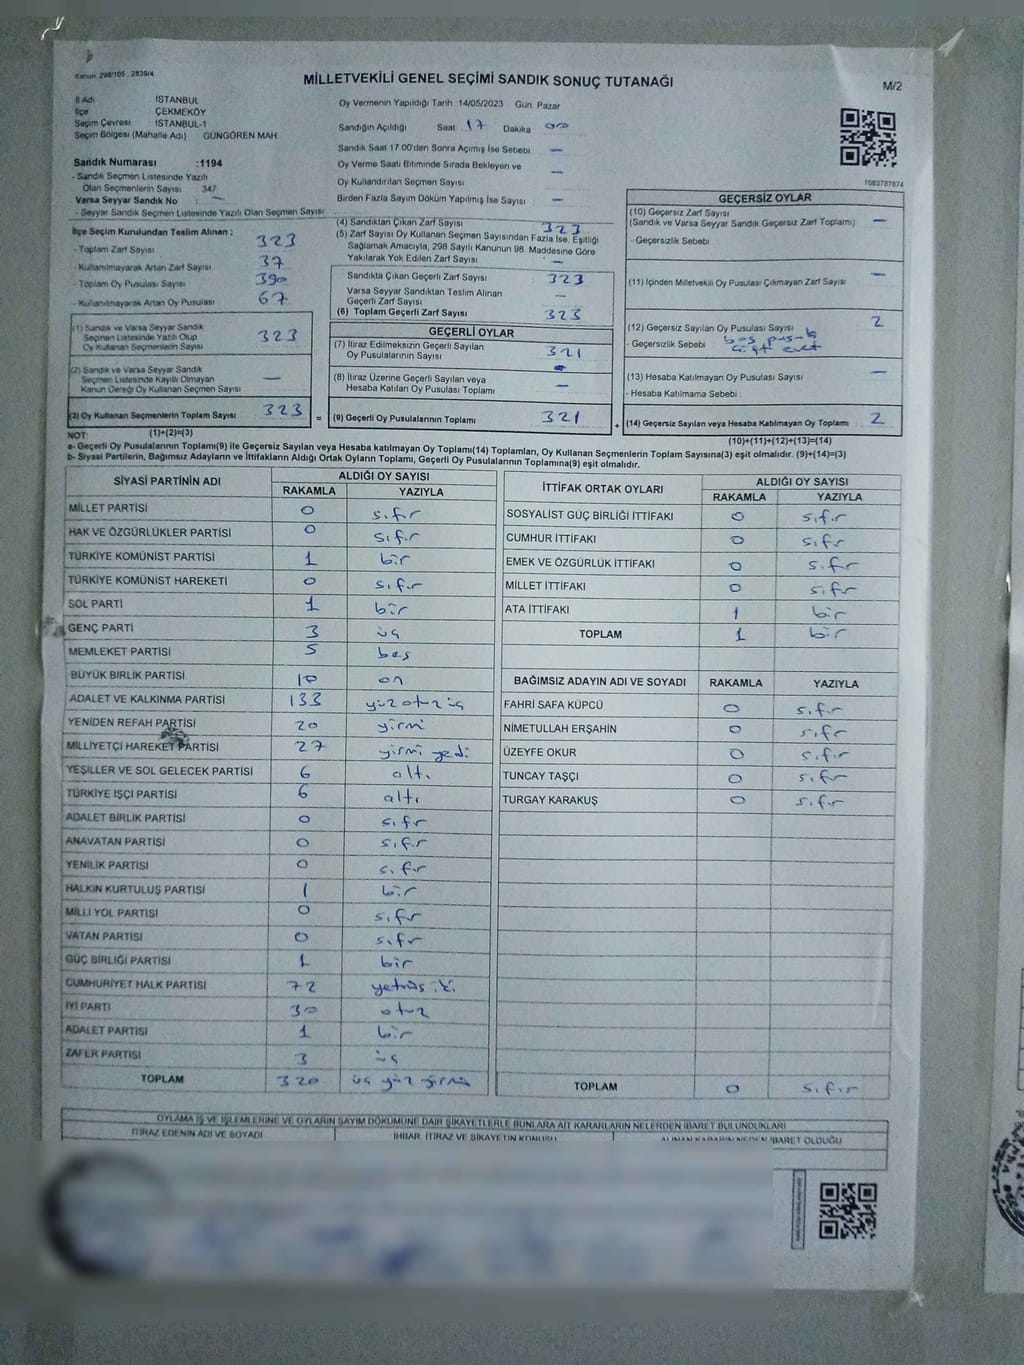 Kanun: 298/105 , 2839/4
MİLLETVEKİLİ GENEL SEÇİMİ SANDIK SONUÇ TUTANAĞI
M/2
İl Adı İSTANBUL
İlçe ÇEKMEKÖY
Seçim Çevresi İSTANBUL-1
Seçim Bölgesi (Mahalle Adı) GÜNGÖREN MAH
Oy Vermenin Yapıldığı Tarih :14/05/2023 Gün Pazar
Sandığın Açıldığı Saat 17 Dakika 00
Sandık Saat 17.00'den Sonra Açımış İse Sebebi —
Oy Verme Saati Bitiminde Sırada Bekleyen ve
Oy Kullandırılan Seçmen Sayısı —
Birden Fazla Sayım Döküm Yapılmış İse Sayısı —
1083787874
Sandık Numarası :1194
- Sandık Seçmen Listesinde Yazılı
Olan Seçmenlerin Sayısı 347
Varsa Seyyar Sandık No : —
- Seyyar Sandık Seçmen Listesinde Yazılı Olan Seçmen Sayısı
İlçe Seçim Kurulundan Teslim Alınan ;
- Toplam Zarf Sayısı 323
- Kullanılmayarak Artan Zarf Sayısı 37
- Toplam Oy Pusulası Sayısı 390
- Kullanılmayarak Artan Oy Pusulası 67
(1) Sandık ve Varsa Seyyar Sandık
Seçmen Listesinde Yazılı Olup
Oy Kullanan Seçmenlerin Sayısı 323
(2) Sandık ve Varsa Seyyar Sandık
Seçmen Listesinde Kayıtlı Olmayan
Kanun Gereği Oy Kullanan Seçmen Sayısı —
(3) Oy Kullanan Seçmenlerin Toplam Sayısı 323 =
(4) Sandıktan Çıkan Zarf Sayısı 323
(5) Zarf Sayısı Oy Kullanan Seçmen Sayısından Fazla İse, Eşitliği
Sağlamak Amacıyla, 298 Sayılı Kanunun 98. Maddesine Göre
Yakılarak Yok Edilen Zarf Sayısı —
Sandıkta Çıkan Geçerli Zarf Sayısı 323
Varsa Seyyar Sandıktan Teslim Alınan
Geçerli Zarf Sayısı —
(6) Toplam Geçerli Zarf Sayısı 323
GEÇERLİ OYLAR
(7) İtiraz Edilmeksizin Geçerli Sayılan
Oy Pusulalarının Sayısı 321
(8) İtiraz Üzerine Geçerli Sayılan veya
Hesaba Katılan Oy Pusulası Toplamı —
(9) Geçerli Oy Pusulalarının Toplamı 321 +
GEÇERSİZ OYLAR
(10) Geçersiz Zarf Sayısı —
(Sandık ve Varsa Seyyar Sandık Geçersiz Zarf Toplamı)
- Geçersizlik Sebebi
(11) İçinden Milletvekili Oy Pusulası Çıkmayan Zarf Sayısı —
(12) Geçersiz Sayılan Oy Pusulası Sayısı 2
- Geçersizlik Sebebi boş pusula
çift evet
(13) Hesaba Katılmayan Oy Pusulası Sayısı —
- Hesaba Katılmama Sebebi
(14) Geçersiz Sayılan veya Hesaba Katılmayan Oy Toplamı 2
NOT: (1)+(2)=(3) (10)+(11)+(12)+(13)=(14)
a- Geçerli Oy Pusulalarının Toplamı(9) ile Geçersiz Sayılan veya Hesaba katılmayan Oy Toplamı(14) Toplamları, Oy Kullanan Seçmenlerin Toplam Sayısına(3) eşit olmalıdır. (9)+(14)=(3)
b- Siyasi Partilerin, Bağımsız Adayların ve İttifakların Aldığı Ortak Oyların Toplamı, Geçerli Oy Pusulalarının Toplamına(9) eşit olmalıdır.
SİYASİ PARTİNİN ADI ALDIĞI OY SAYISI
RAKAMLA YAZIYLA
MİLLET PARTİSİ 0 sıfır
HAK VE ÖZGÜRLÜKLER PARTİSİ 0 sıfır
TÜRKİYE KOMÜNİST PARTİSİ 1 bir
TÜRKİYE KOMÜNİST HAREKETİ 0 sıfır
SOL PARTİ 1 bir
GENÇ PARTİ 3 üç
MEMLEKET PARTİSİ 5 beş
BÜYÜK BİRLİK PARTİSİ 10 on
ADALET VE KALKINMA PARTİSİ 133 yüz otuz üç
YENİDEN REFAH PARTİSİ 20 yirmi
MİLLİYETÇİ HAREKET PARTİSİ 27 yirmi yedi
YEŞİLLER VE SOL GELECEK PARTİSİ 6 altı
TÜRKİYE İŞÇİ PARTİSİ 6 altı
ADALET BİRLİK PARTİSİ 0 sıfır
ANAVATAN PARTİSİ 0 sıfır
YENİLİK PARTİSİ 0 sıfır
HALKIN KURTULUŞ PARTİSİ 1 bir
MİLLİ YOL PARTİSİ 0 sıfır
VATAN PARTİSİ 0 sıfır
GÜÇ BİRLİĞİ PARTİSİ 1 bir
CUMHURİYET HALK PARTİSİ 72 yetmiş iki
İYİ PARTİ 30 otuz
ADALET PARTİSİ 1 bir
ZAFER PARTİSİ 3 üç
TOPLAM 320 üç yüz yirmi
İTTİFAK ORTAK OYLARI ALDIĞI OY SAYISI
RAKAMLA YAZIYLA
SOSYALİST GÜÇ BİRLİĞİ İTTİFAKI 0 sıfır
CUMHUR İTTİFAKI 0 sıfır
EMEK VE ÖZGÜRLÜK İTTİFAKI 0 sıfır
MİLLET İTTİFAKI 0 sıfır
ATA İTTİFAKI 1 bir
TOPLAM 1 bir
BAĞIMSIZ ADAYIN ADI VE SOYADI RAKAMLA YAZIYLA
FAHRİ SAFA KÜPCÜ 0 sıfır
NİMETULLAH ERŞAHİN 0 sıfır
ÜZEYFE OKUR 0 sıfır
TUNCAY TAŞÇI 0 sıfır
TURGAY KARAKUŞ 0 sıfır
TOPLAM 0 sıfır
OYLAMA İŞ VE İŞLEMLERİNE VE OYLARIN SAYIM DÖKÜMÜNE DAİR ŞİKAYETLERLE BUNLARA AİT KARARLARIN NELERDEN İBARET BULUNDUKLARI
İTİRAZ EDENİN ADI VE SOYADI İHBAR, İTİRAZ VE ŞİKAYETİN KONUSU ALINAN KARARIN NEDEN İBARET OLDUĞU